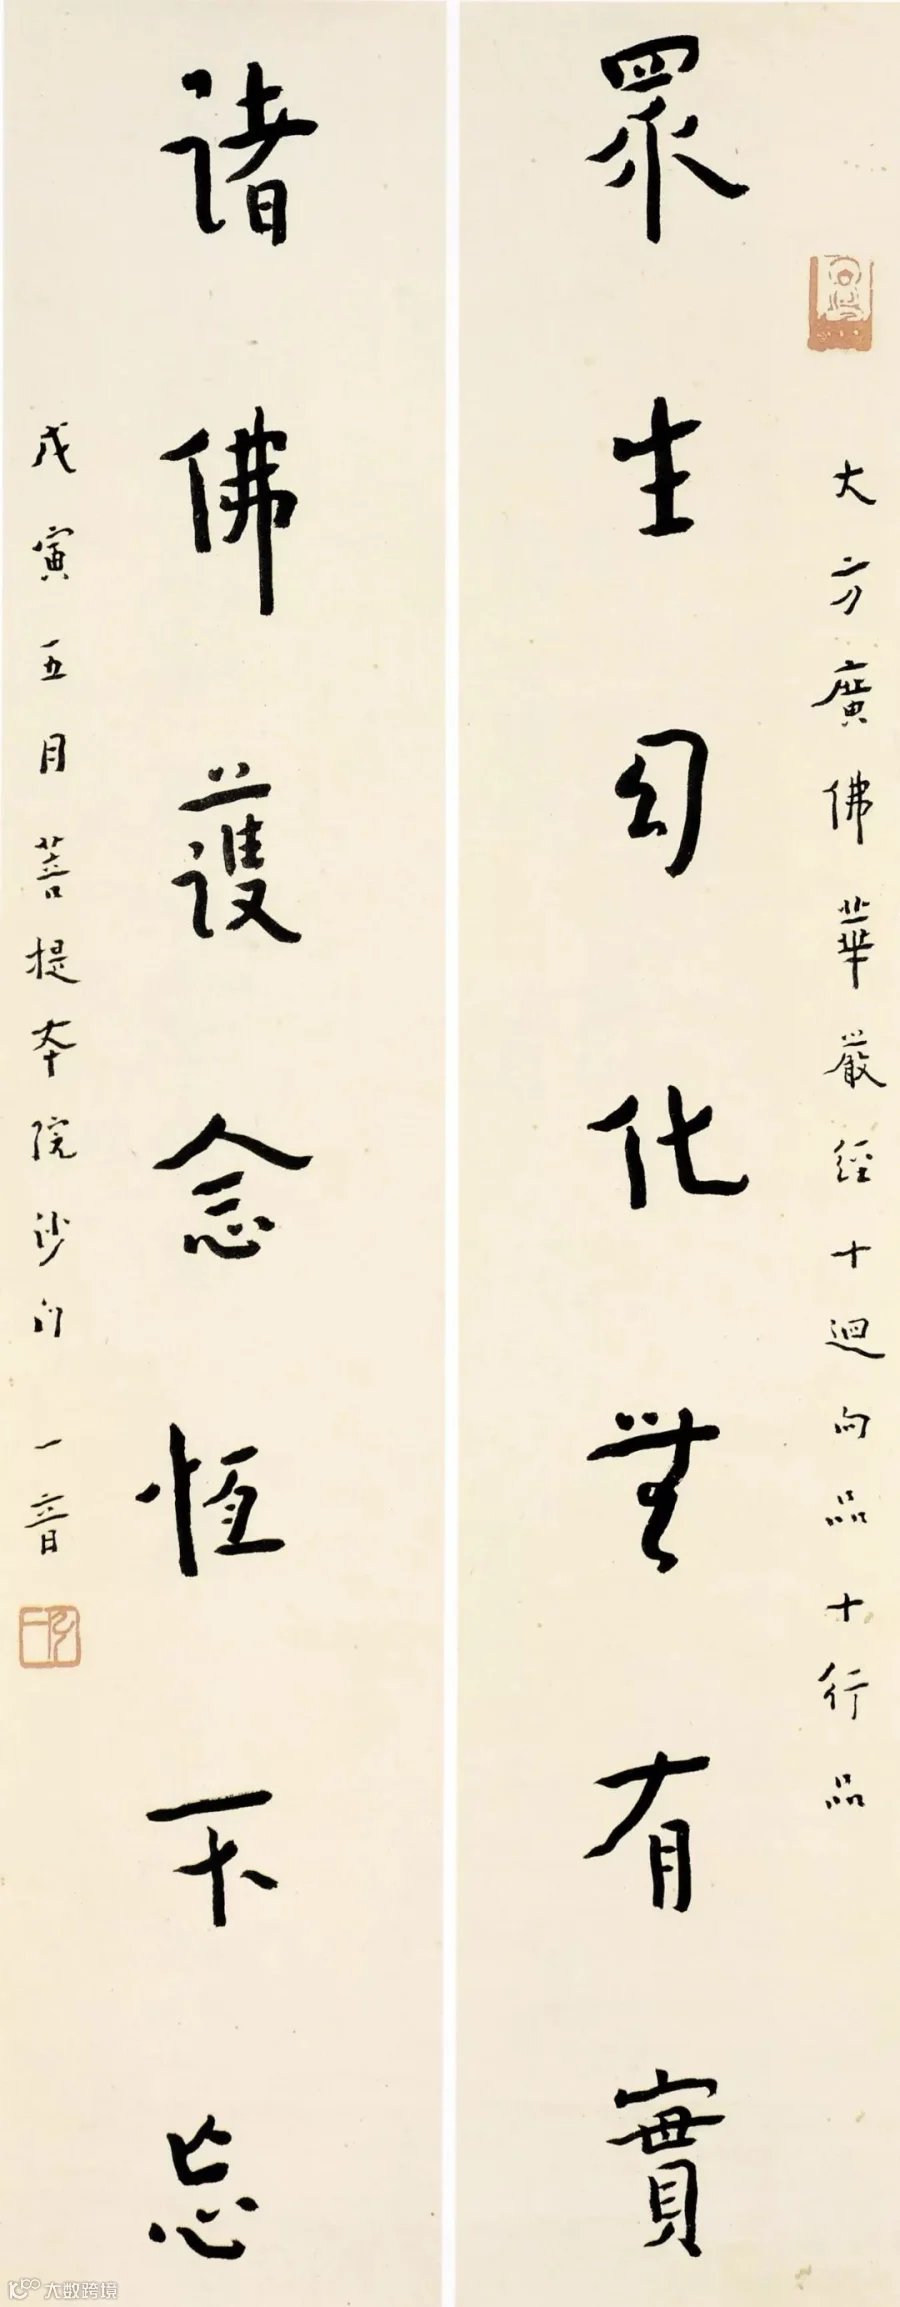 大方廣佛華嚴經十迴向品十行品
眾生幻化無有實
諸佛護念恆不忘
戊寅五月菩提本院沙門一音
大数跨境